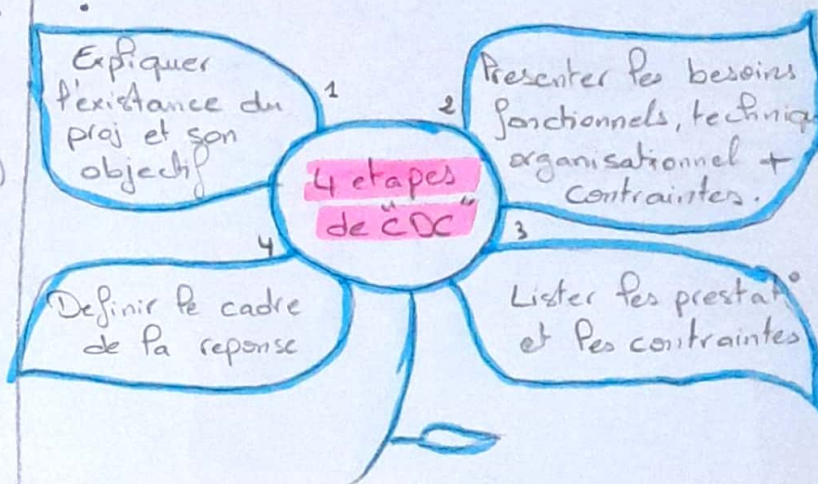 4 etapes
de "CDC"
1
Expliquer
l'existance du
proj et son
objectif
2
Presenter les besoins
fonctionnels, techniq
organisationnel +
contraintes.
3
Lister les prestat°
et les contraintes
4
Definir le cadre
de la reponse